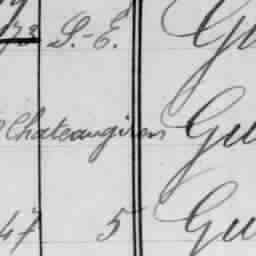 73 S.-E. Gu
Chateaugiron Gu
47 5 Gu